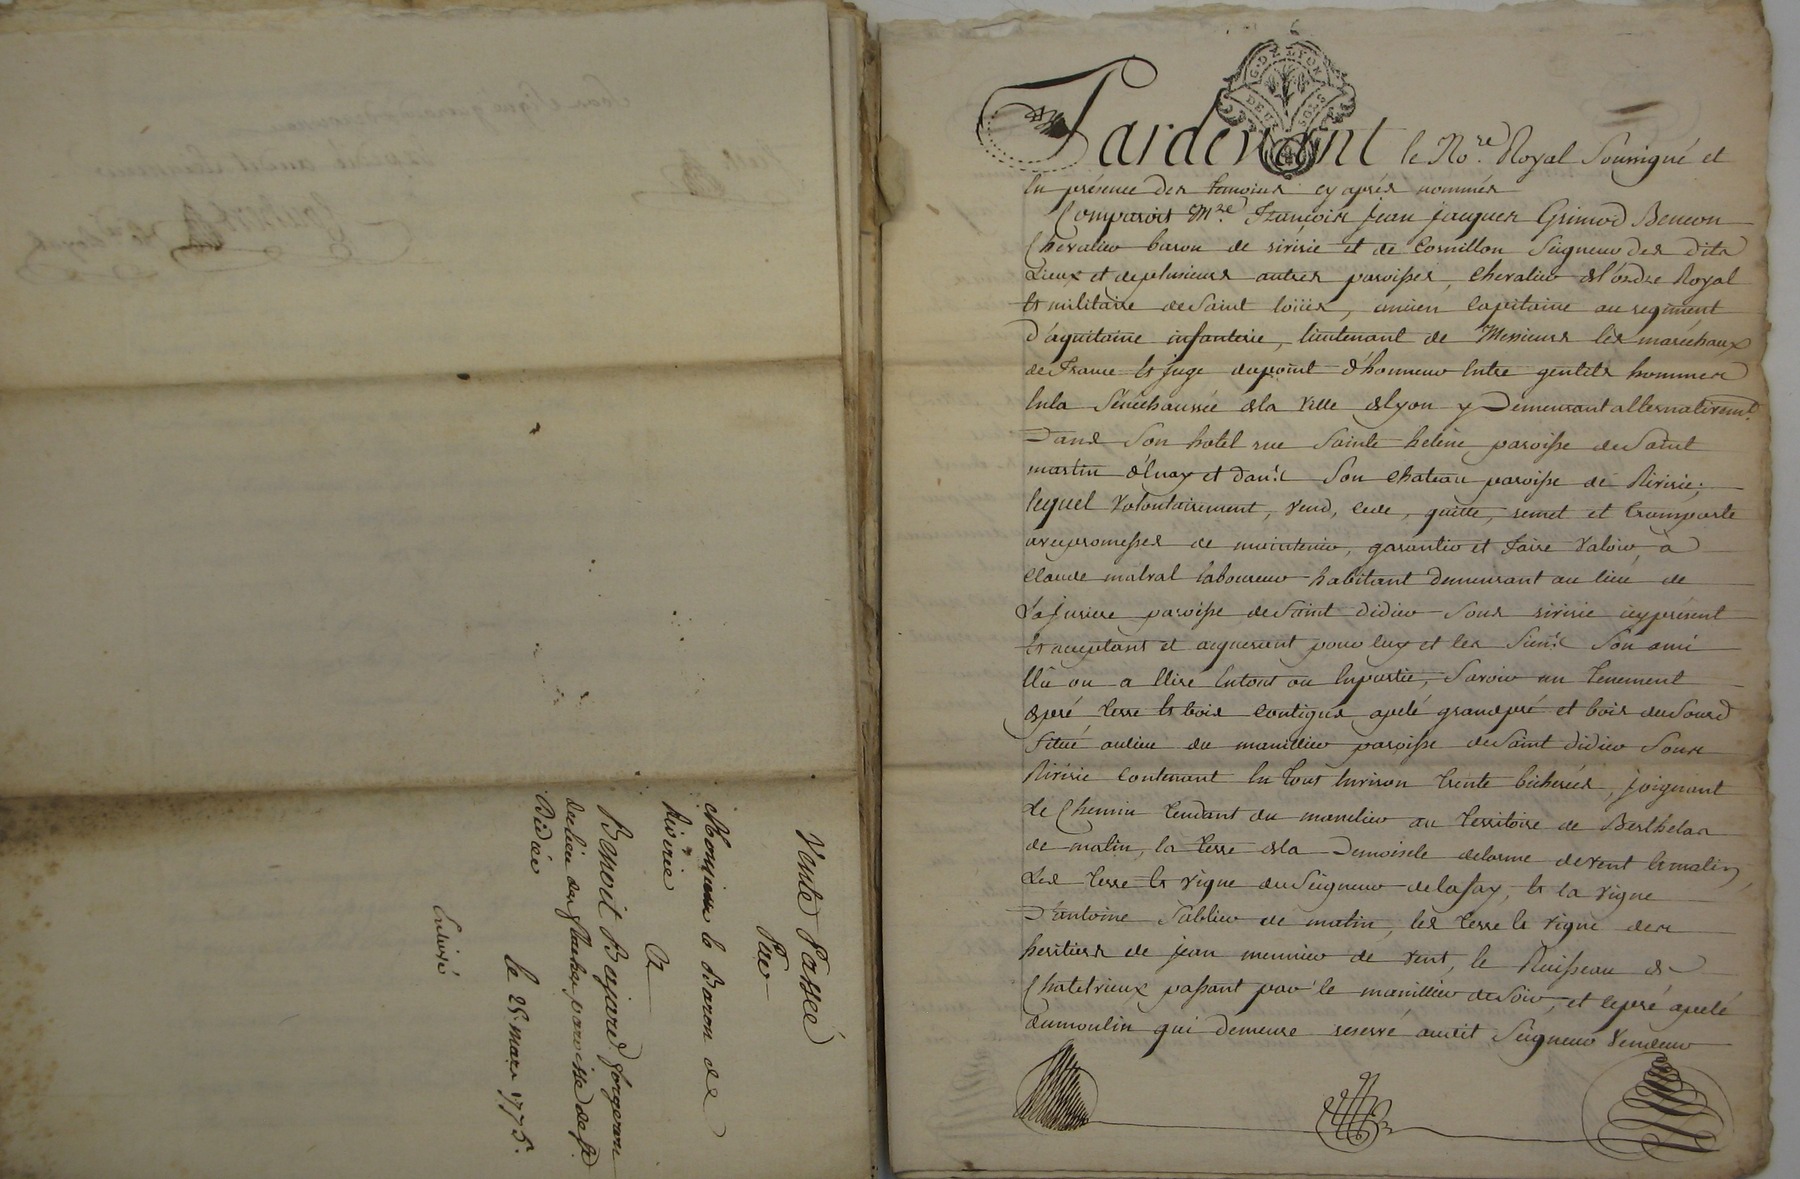 Vente Passé
Par
Monsieur le Baron de
Rivirie
A
Benoit Bajard forgeron
du lieu de parroisse de St
Didier
le 25 mars 1775.
G. DE LYON
DEUX SOLS
Pardevant le No.re Royal Soussigné et
En présence des temoins cy après nommés
Comparoit Mre François Jean Jacques Grimod Beneon
Chevalier baron de riririe et de Cornillon Seigneur des dits
Lieux et de plusieurs autres paroisses, Chevalier de l'ordre Royal
et militaire de Saint loüis, ancien Capitaine au regiment
D'aquitaine infanterie, lieutenant de Messieurs lès maréchaux
de France et juge du point d'honneur Entre gentils hommes
En la Sénéchaussée de la ville de lyon y Demeurant alternativemt
Dans Son hotel rue Sainte helène paroisse de Saint
martin d'Enay et dans Son Chateau paroisse de Riririe;
lequel volontairement, vend, cede, quitte, remet et transporte
avec promesses de maintenir, garantir et faire valoir, à
Claude matral laboureur habitant demeurant au lieu de
Lajusiere paroisse de Saint didier Sous riririe icy présent
Et acceptant et acquerant pour luy et les Siens Son ami
Elû ou a Elire En tout ou En partie, Savoir un Tenement
de pré terre et bois contigus apelé grand pré et bois du Sourd
Situé au lieu du manillier paroisse de Saint didier Sous
Riririe contenant En tout Environ trente bicherées, joignant
Le Chemin tendant du manilier au territoire de Berthelas
de matin, la terre de la Demoiselle delorme de vent et matin,
Les terre et vigne du Seigneur de lafay, et la vigne
D'antoine Sablier de matin, les terre et vigne des
heritiers de jean meunier de vent, le Ruisseau de
Chatelvieux passant par le manillier de Soir, et le pré apelé
du moulin qui demeure reservé audit Seigneur Vendeur